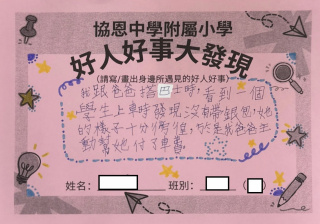 協恩中學附屬小學
好人好事大發現
(請寫/畫出身邊所遇見的好人好事)
我跟爸爸搭巴士時,看到一個
學生上車時發現沒有帶銀包,她
的樣子十分徬徨,於是我爸爸主
動幫她付了車費。
姓名:
班別: ( )